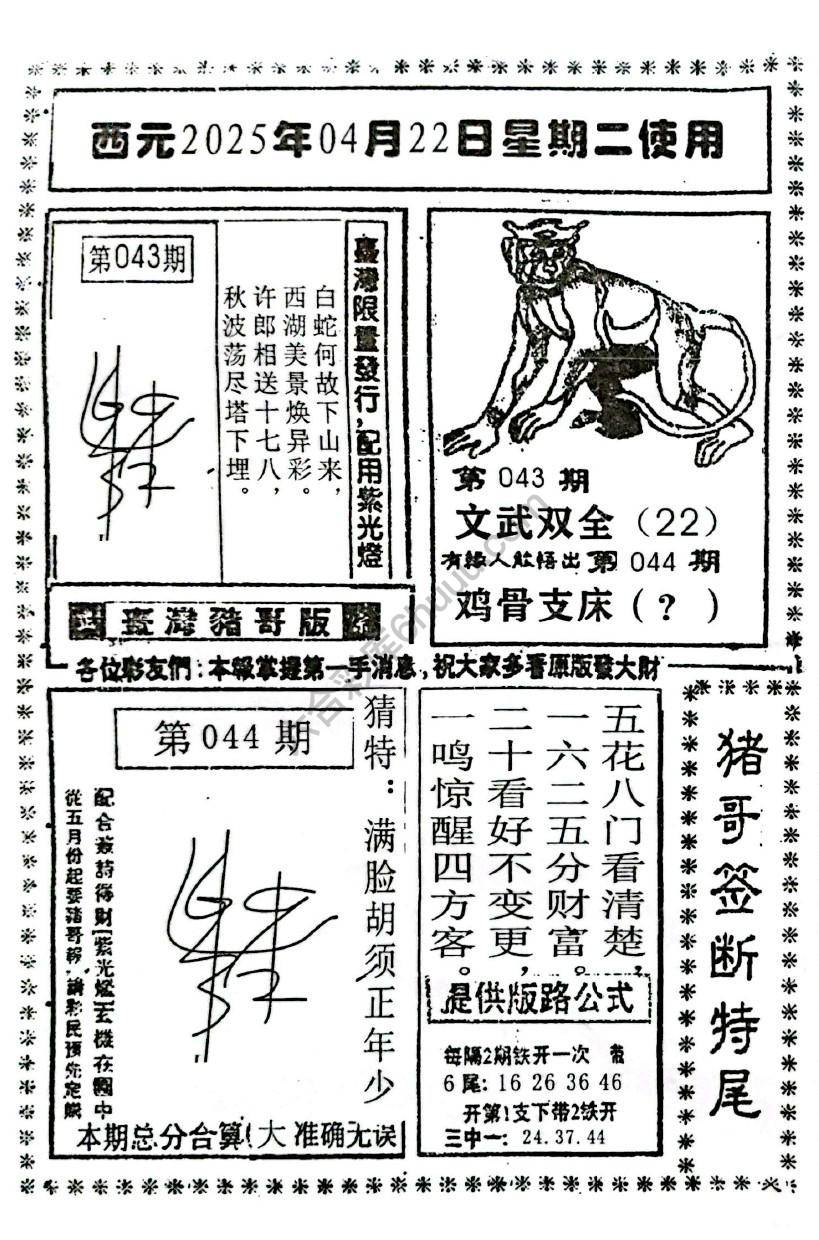 西元2025年04月22日星期二使用
第043期
臺灣限量發行,配用紫光燈
白蛇何故下山来,
西湖美景焕异彩。
许郎相送十七八,
秋波荡尽塔下埋。
第 043 期
文武双全（22）
有緣人能悟出 第 044 期
鸡骨支床（?）
臺灣豬哥版
各位彩友們:本報掌握第一手消息,祝大家多看原版發大財
第 044 期
猜特：满脸胡须正年少
配合簽詩得財[紫光燈]玄機在圖中
從五月份起要豬哥報,請彩民預先定
本期总分合算(大 准确无误
五花八门看清楚,
一六二五分财富。
二十看好不变更,
一鸣惊醒四方客。
提供版路公式
每隔2期铁开一次
6尾: 16 26 36 46
开第1支下带2铁开
三中一: 24.37.44
猪哥签断特尾